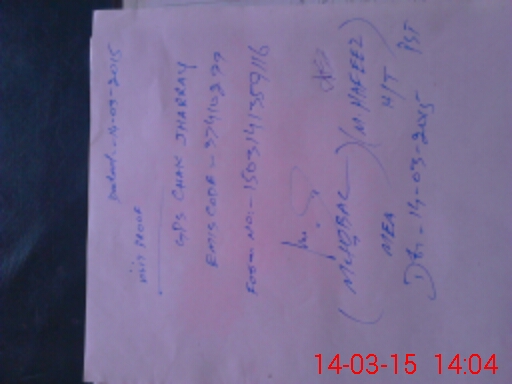 Dated:-14-03-2015
visit PROOF
GPS CHAK JHARRAY
EMIS CODE -37410277
Form. No:- 15031413591
(M. IQBAL) (M. HAFEEZ)
MEA H/T PST
Dt:-14-03-2015
14-03-15 14:04